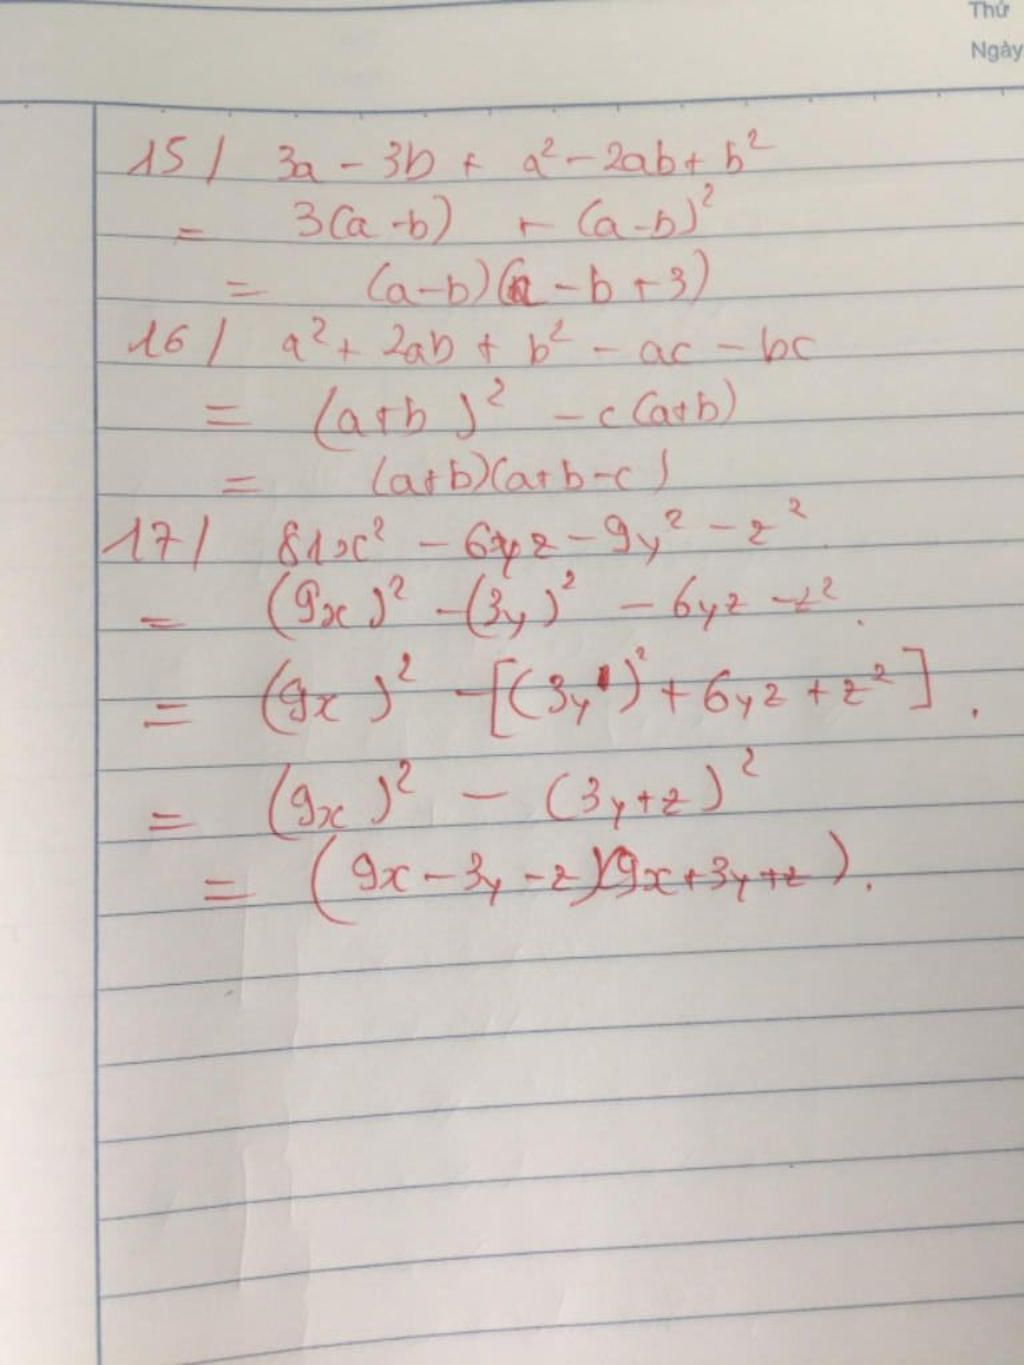 Thứ
Ngày
15/ 3a - 3b + a² - 2ab + b²
= 3(a-b) + (a-b)²
= (a-b)(a - b + 3)
16/ a² + 2ab + b² - ac - bc
= (a+b)² - c(a+b)
= (a+b)(a+b-c)
17/ 81x² - 6yz - 9y² - z²
= (9x)² - (3y)² - 6yz - z².
= (9x)² - [(3y)² + 6yz + z²].
= (9x)² - (3y+z)²
= (9x - 3y - z)(9x + 3y + z).